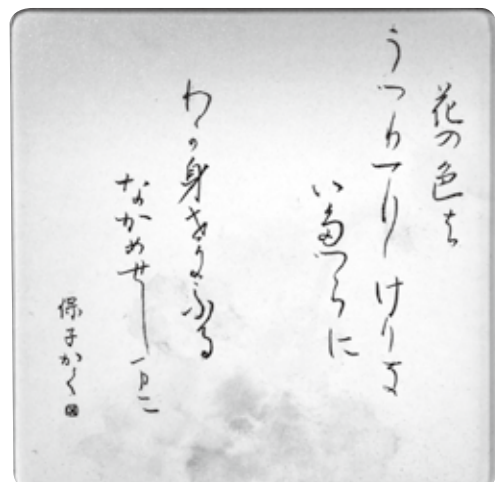 花の色は
うつりにけりな
いたつらに
わか身世にふる
なかめせしまに
保子かく